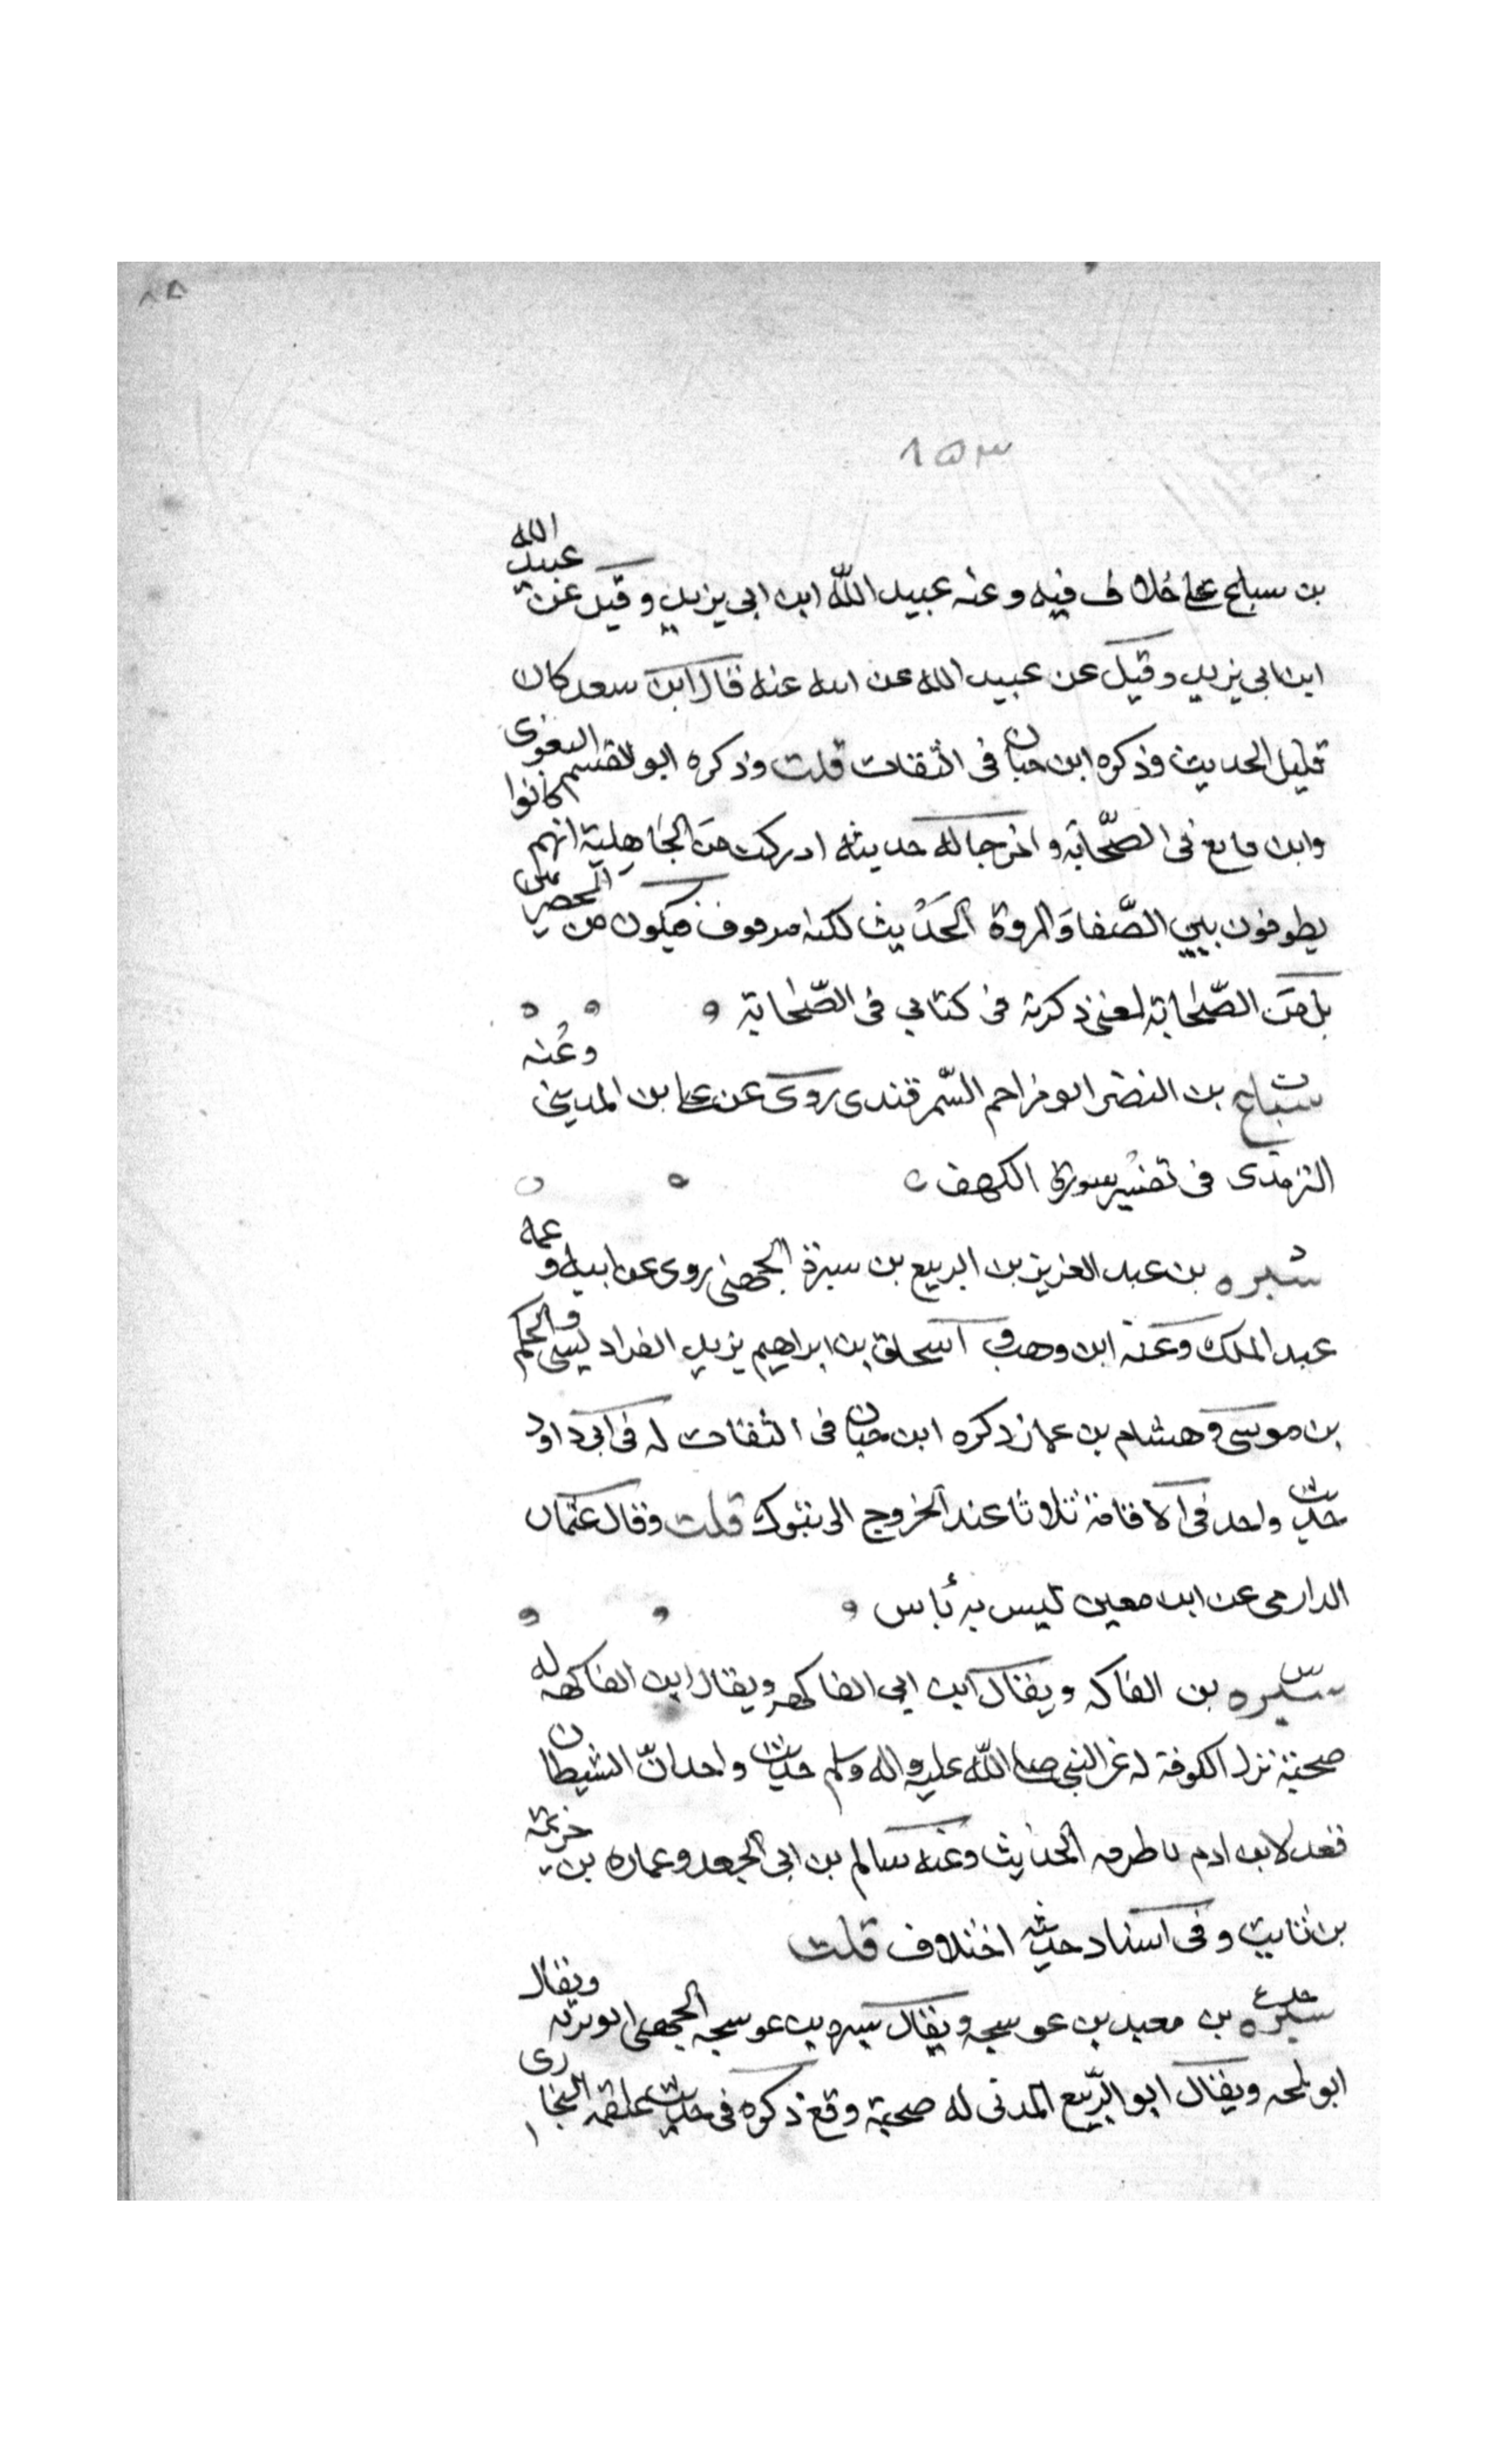 ٨٨
١٥٣
بن سباع على خلاف فيه وعنه عبيد الله ابن ابي يزيد وقيل عن عبيد الله
ابن ابي يزيد وقيل عن عبيد الله عن ابيه عنه قال ابن سعد كان
قليل الحديث وذكره ابن حبان فى الثقات قلت وذكره ابو القسم البغوى
وابن قانع فى الصحابة واخرجا له حديثه ادركت من الجاهلية انهم كانوا
يطوفون بين الصفا والمروة الحديث لكنه موقوف فيكون من المخضرمين
بل من الصحابة لمعنى ذكرته فى كتابي فى الصحابة
ت سباع بن النضر ابو مزاحم السمرقندى روى عن على بن المدينى وعنه
الترمذى فى تفسير سورة الكهف
د سبره بن عبد العزيز بن الربيع بن سبرة الجهنى روى عن ابيه وعمه
عبد الملك وعنه ابن وهب و اسحاق بن ابراهيم يزيد الفراديسى والحكم
بن موسى وهشام بن عمار ذكره ابن حبان فى الثقات له فى ابى داود
حديث واحد فى الاقامة ثلاثا عند الخروج الى تبوك قلت وقال عثمان
الدارمى عن ابن معين ليس به بأس
س سبره بن الفاكه ويقال ابن ابي الفاكهه ويقال ابن الفاكهه له
صحبة نزل الكوفة له عن النبي صلى الله عليه واله وسلم حديث واحد ان الشيطان
قعد لابن ادم باطرقه الحديث وعنه سالم بن ابى الجعد وعماره بن خزيمة
بن ثابت وفى اسناد حديثه اختلاف قلت
سبره بن معبد بن عوسجه ويقال سبره بن عوسجه الجهنى ابو ثريه ويقال
ابو بلجه ويقال ابو الربيع المدنى له صحبة وقع ذكره فى حديث علقمه البخارى